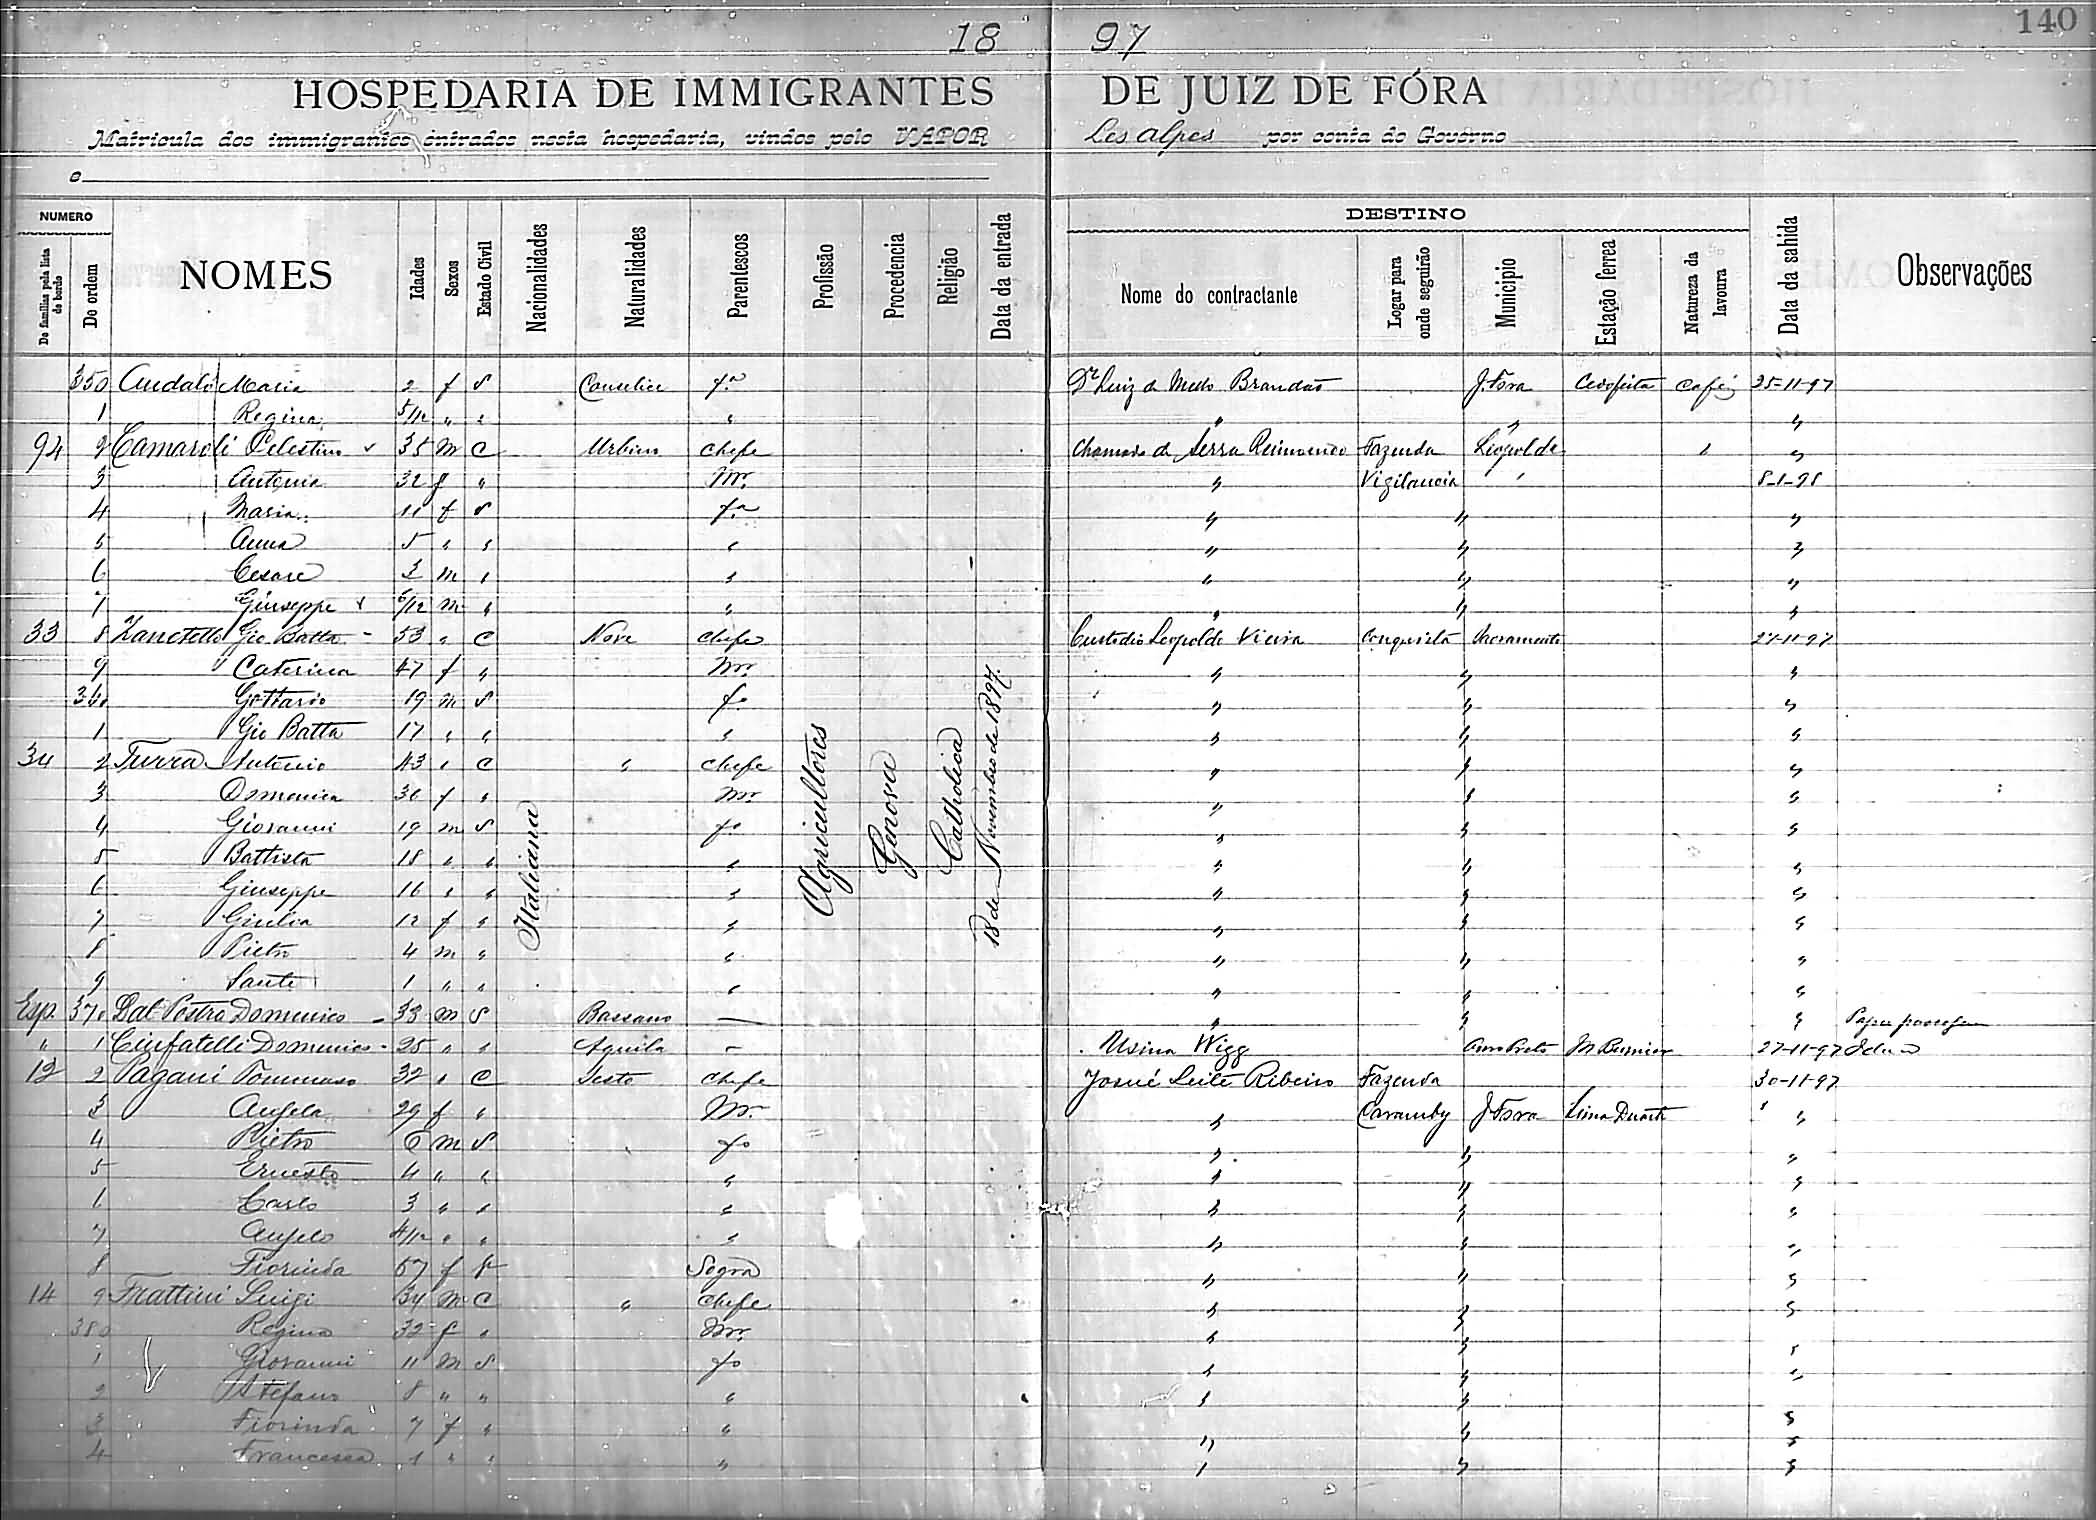 140
18 97
HOSPEDARIA DE IMMIGRANTES DE JUIZ DE FÓRA
Matricula dos immigrantes entrados nesta hospedaria, vindos pelo VAPOR Les Alpes por conta do Governo
e
NUMERO DESTINO
De familias pela lista de bordo De ordem NOMES Idades Sexos Estado Civil Nacionalidades Naturalidades Parentescos Profissão Procedencia Religião Data da entrada Nome do contractante Logar para onde seguirão Municipio Estação ferrea Natureza da lavoura Data da sahida Observações
350 Maria 2 f S fa Dr Luiz de Mello Brandão J. Fora Cedofeita Café 25-11-97
1 Regina 5/12 " " " " " "
94 2 Camaroli Celestino 35 m C Urbino Chefe Serra Fazenda Leopolda "
3 Antonia 32 f " Mr. " Vigilancia " 8-1-98
4 Maria 11 f S fa " " "
5 Anna 5 " " " " " "
6 Cesare 3 m " " " " "
7 Giuseppe 6/12 m " " " " "
33 8 Zanetello Gio Batta 53 " C Nove Chefe Custodio Leopoldo Vieira Conquista Sacramento 27-11-97
9 Caterina 47 f " Mr. " " "
360 Gottardo 19 m S fo " " "
1 Gio Batta 17 " " " " " "
34 2 Turra Antonio 43 " C " Chefe " " "
3 Domenica 36 f " Mr. " " "
4 Giovanni 19 m S fo " " "
5 Battista 18 " " " " " "
6 Giuseppe 16 " " " " " "
7 Giulia 12 f " " " " "
8 Pietro 4 m " " " " "
9 Sante 1 " " " " " "
Esp. 370 Dal Postro Domenico 33 m S Bassano — " " "
" 1 Ciufatelli Domenico 25 " " Aquila — Usina Wigg Ouro Preto M Burnier 27-11-97
12 2 Pagani Tommaso 32 " C Sesto Chefe Josué Leite Ribeiro Fazenda 30-11-97
3 Angela 29 f " Mr. " J. Fora Lima Duarte "
4 Pietro 6 m S fo " " "
5 Ernesto 4 " " " " " "
6 Carlo 3 " " " " " "
7 Angelo 4/12 " " " " " "
8 Fiorinda 57 f Sogra " " "
14 9 Frattini Luigi 34 m C " Chefe " " "
380 Regina 32 f " Mr. " " "
1 Giovanni 11 m S fo " " "
2 Stefano 8 " " " " " "
3 Fiorinda 7 f " " " " "
4 Francesca 1 " " " " " "
Italiana
Agricultores
Genova
Catholica
18 de Novembro de 1897.